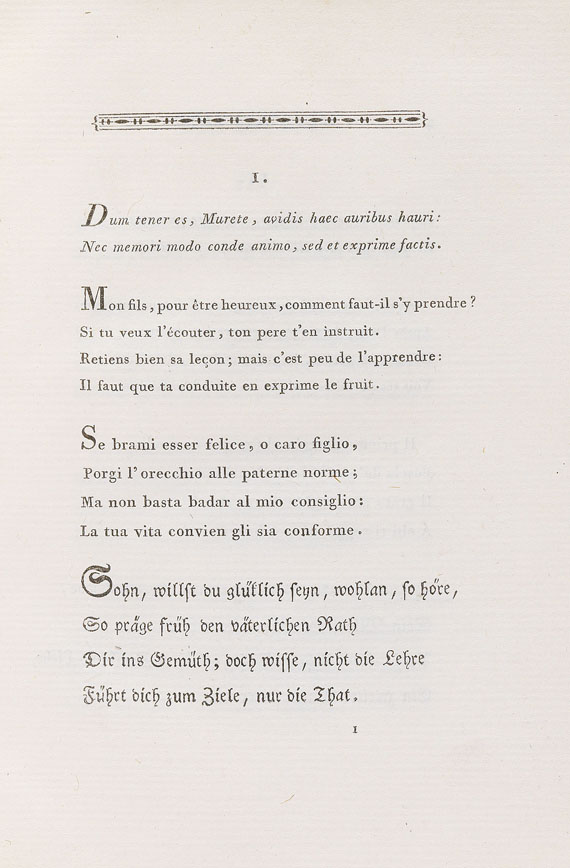 1.
Dum tener es, Murete, avidis haec auribus hauri:
Nec memori modo conde animo, sed et exprime factis.
Mon fils, pour être heureux, comment faut-il s'y prendre ?
Si tu veux l'écouter, ton pere t'en instruit.
Retiens bien sa leçon; mais c'est peu de l'apprendre:
Il faut que ta conduite en exprime le fruit.
Se brami esser felice, o caro figlio,
Porgi l'orecchio alle paterne norme;
Ma non basta badar al mio consiglio:
La tua vita convien gli sia conforme.
Sohn, willst du glüklich seyn, wohlan, so höre,
So präge früh den väterlichen Rath
Dir ins Gemüth; doch wisse, nicht die Lehre
Führt dich zum Ziele, nur die That.
1